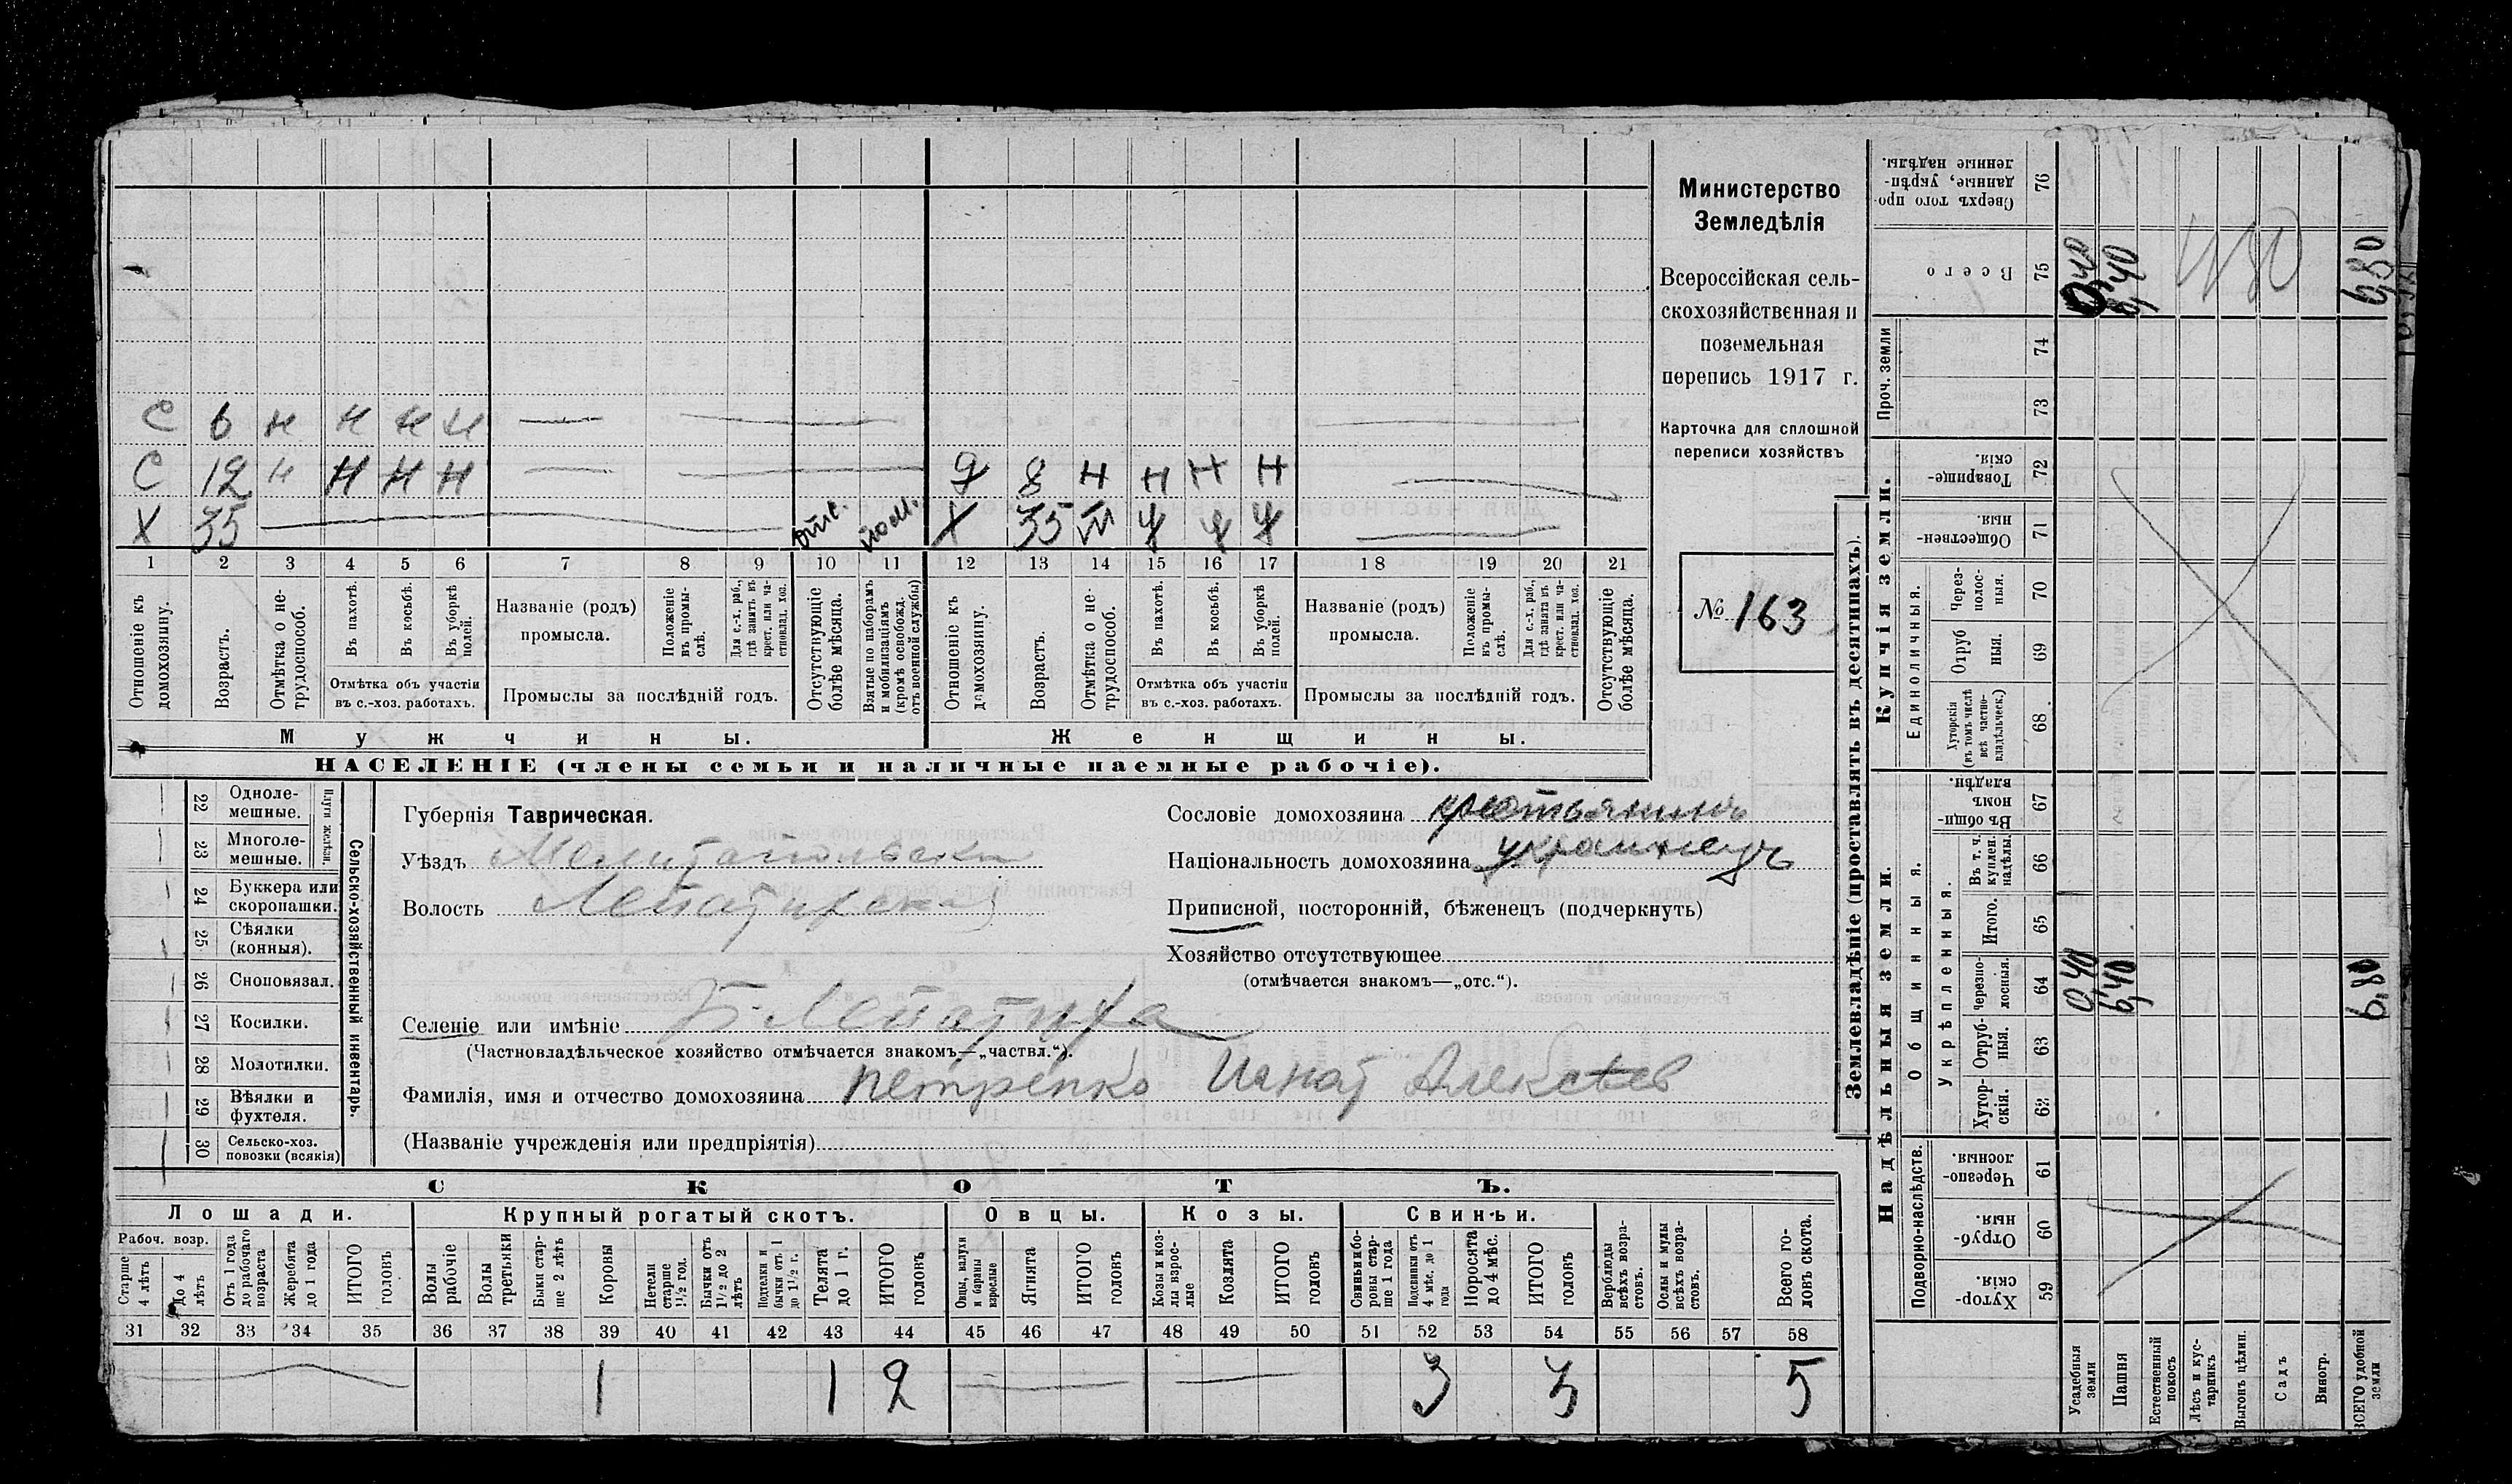 Министерство
Земледѣлія
Всероссійская сель-
скохозяйственная и
поземельная
перепись 1917 г.
Карточка для сплошной
переписи хозяйствъ
№ 163
С 6 н н н н
С 12 н н н н 9 8 н н н н
Х 35 отс. Х 35
1 2 3 4 5 6 7 8 9 10 11 12 13 14 15 16 17 18 19 20 21
Отношеніе къ домохозяину.
Возрастъ.
Отмѣтка о не-трудоспособ.
Въ пахотѣ.
Въ косьбѣ.
Въ уборкѣ полей.
Отмѣтка объ участіи
въ с.-хоз. работахъ.
Названіе (родъ)
промысла.
Положеніе въ промы-слѣ.
Для с.-х. раб., гдѣ занятъ въ крест. или ча-стновлад. хоз.
Промыслы за послѣдній годъ.
Отсутствующіе болѣе мѣсяца.
Взятые по наборамъ и мобилизаціямъ (кромѣ освобожд. отъ военной службы)
Отношеніе къ домохозяину.
Возрастъ.
Отмѣтка о не-трудоспособ.
Въ пахотѣ.
Въ косьбѣ.
Въ уборкѣ полей.
Отмѣтка объ участіи
въ с.-хоз. работахъ.
Названіе (родъ)
промысла.
Положеніе въ промы-слѣ.
Для с.-х. раб., гдѣ занята въ крест. или ча-стновлад. хоз.
Промыслы за послѣдній годъ.
Отсутствующіе болѣе мѣсяца.
Мужчины. Женщины.
НАСЕЛЕНІЕ (члены семьи и наличные наемные рабочіе).
Сельско-хозяйственный инвентарь.
Плуги желѣзн.
22 Одноле-мешные.
23 Многоле-мешные.
24 Буккера или скоропашки.
25 Сѣялки (конныя).
26 Сноповязал.
27 Косилки.
28 Молотилки.
29 Вѣялки и фухтеля.
30 Сельско-хоз. повозки (всякія)
Губернія Таврическая.
Уѣздъ Мелитопольскій
Волость Лепатихская
Сословіе домохозяина крестьянинъ
Національность домохозяина украинецъ
Приписной, посторонній, бѣженецъ (подчеркнуть)
Хозяйство отсутствующее
(отмѣчается знакомъ—„отс.“).
Селеніе или имѣніе Б-Лепатиха
(Частновладѣльческое хозяйство отмѣчается знакомъ—„частвл.“).
Фамилія, имя и отчество домохозяина Петренко Игнат Алексѣев
(Названіе учрежденія или предпріятія)
СКОТЪ.
Лошади. Крупный рогатый скотъ. Овцы. Козы. Свиньи.
Рабоч. возр.
Старше 4 лѣтъ
До 4 лѣтъ
Отъ 1 года до рабочаго возраста
Жеребята до 1 года
ИТОГО головъ
Волы рабочіе
Волы третьяки
Быки стар-ше 2 лѣтъ
Коровы
Нетели старше 1½ год.
Бычки отъ 1½ до 2 лѣтъ
Подтелки и бычки отъ 1 до 1½ г.
Телята до 1 г.
ИТОГО головъ
Овцы, валухи и бараны взрослые
Ягнята
ИТОГО головъ
Козы и коз-лы взрос-лые
Козлята
ИТОГО головъ
Свиньи и бо-ровы стар-ше 1 года
Подсвинки отъ 4 мѣс. до 1 года
Поросята до 4 мѣс.
ИТОГО головъ
Верблюды всѣхъ возра-стовъ.
Ослы и мулы всѣхъ возра-стовъ.
Всего го-ловъ скота.
31 32 33 34 35 36 37 38 39 40 41 42 43 44 45 46 47 48 49 50 51 52 53 54 55 56 57 58
1 1 2 3 3 5
Землевладѣніе (проставлять въ десятинахъ).
Надѣльныя земли. Купчія земли. Проч. земли
Подворно-наслѣдств.
Общинныя.
Укрѣпленныя.
Единоличныя.
76 Сверхъ того про-данные, укрѣп-ленные надѣлы.
75 Всего 0,40 6,40 6,80
480
74
73
72 Товарище-скія.
71 Обществен-ныя.
70 Через-полос-ныя.
69 Отруб ныя.
68 Хуторскія (въ томъ числѣ всѣ частно-владѣльческ.)
67 Въ общи-номъ владѣн.
66 Въ т. ч. куплен. надѣлы.
65 Итого.
64 Черезпо-лосныя. 0,40 6,40 6,80
63 Отруб-ныя.
62 Хутор-скія.
61 Черезпо-лосныя.
60 Отруб-ныя.
59 Хутор-скія.
Усадебныя земли
Пашня
Естественный покосъ
Лѣсъ и кус-тарникъ
Выгонъ цѣлин.
Садъ
Виногр.
ВСЕГО удобной земли